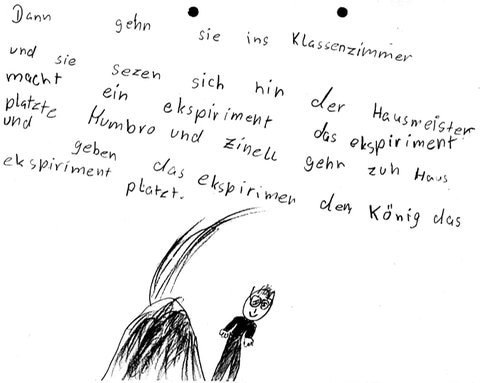 Dann gehn sie ins Klassenzimmer
und sie sezen sich hin der Hausmeister
macht ein ekspiriment das ekspiriment
platzte Humbro und zinell gehn zuh Haus
und geben das ekspirimen den König das
ekspiriment platzt.